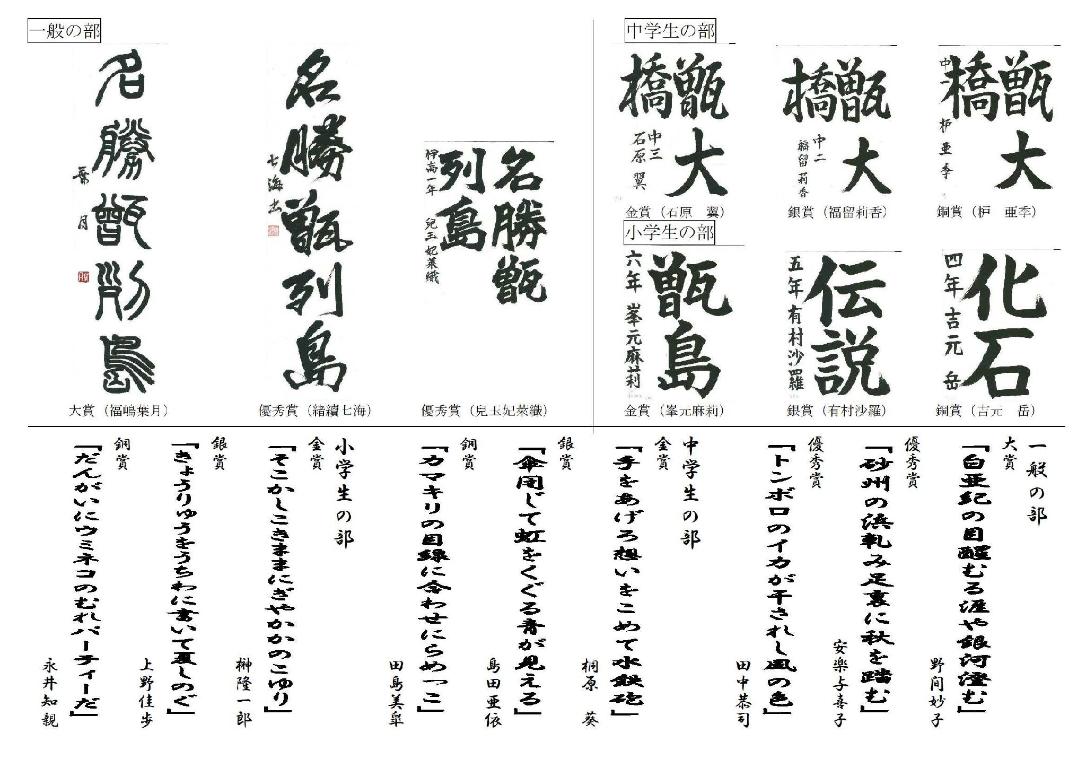 一般の部
名勝甑列島
葉月
大賞（福嶋葉月）
名勝甑列島
七海出
優秀賞（緒續七海）
名勝甑
列島
甲高一年 兒玉妃菜織
優秀賞（兒玉妃菜織）
中学生の部
甑大
橋
中三
石原 翼
金賞（石原　翼）
甑大
橋
中二
福留莉香
銀賞（福留莉香）
甑大
橋
中一 枦亜季
銅賞（枦　亜季）
小学生の部
甑島
六年 峯元麻莉
金賞（峯元麻莉）
伝説
五年 有村沙羅
銀賞（有村沙羅）
化石
四年 吉元 岳
銅賞（吉元　岳）
一般の部
大賞
「白亜紀の目醒むる涯や銀河澄む」
野間妙子
優秀賞
「砂州の浜軋み足裏に秋を踏む」
安樂与喜子
優秀賞
「トンボロのイカが干されし風の色」
田中恭司
中学生の部
金賞
「手をあげろ想いをこめて水鉄砲」
桐原　葵
銀賞
「傘閉じて虹をくぐる青が見える」
島田亜依
銅賞
「カマキリの目線に合わせにらめっこ」
田島美皐
小学生の部
金賞
「そこかしこきままにぎやかかのこゆり」
榊隆一郎
銀賞
「きょうりゅうをうちわに書いて夏しのぐ」
上野佳歩
銅賞
「だんがいにウミネコのむれパーティーだ」
永井知親